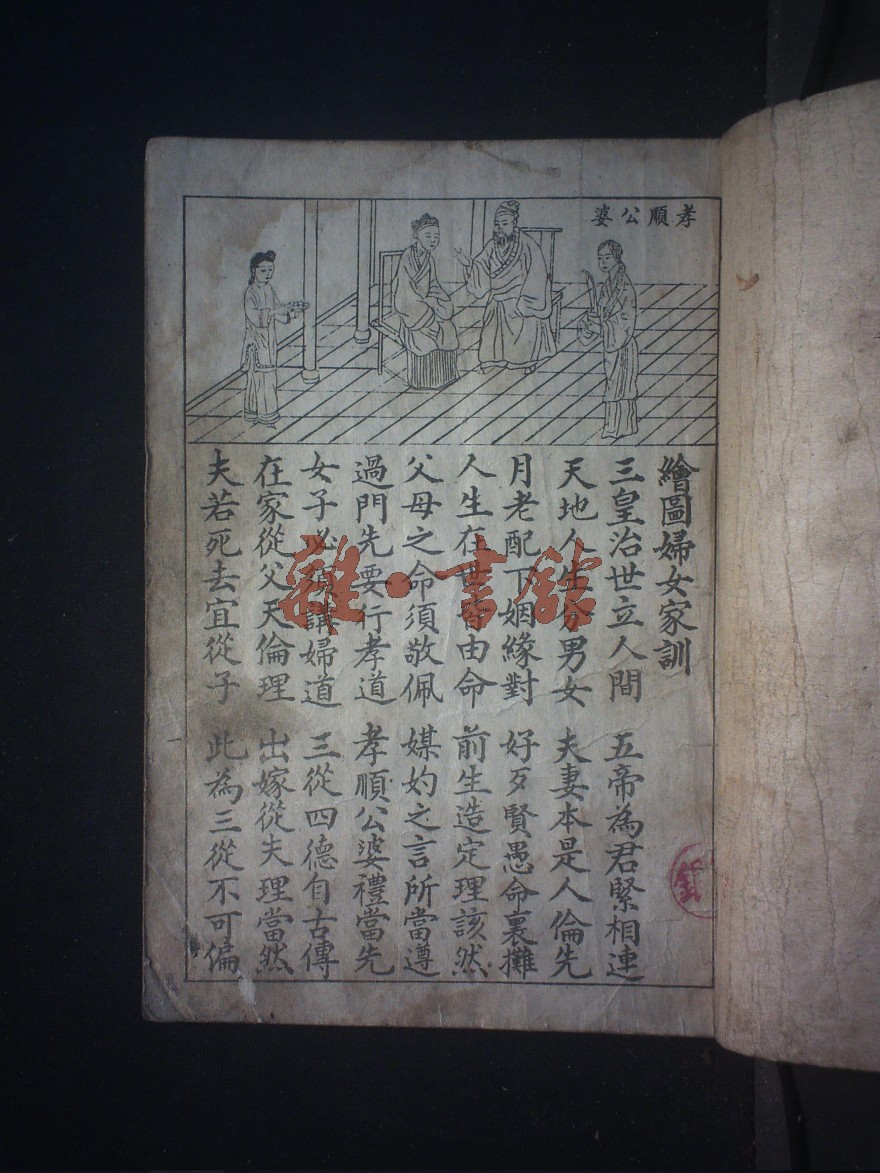 孝順公婆
繪圖婦女家訓
三皇治世立人間 五帝為君緊相連
天地人生分男女 夫妻本是人倫先
月老配下姻緣對 好歹賢愚命裏攤
人生在世皆由命 前生造定理該然
父母之命須敬佩 媒妁之言所當遵
過門先要行孝道 孝順公婆禮當先
女子必須講婦道 三從四德自古傳
在家從父天倫理 出嫁從夫理當然
夫若死去宜從子 此為三從不可偏
雜·書館